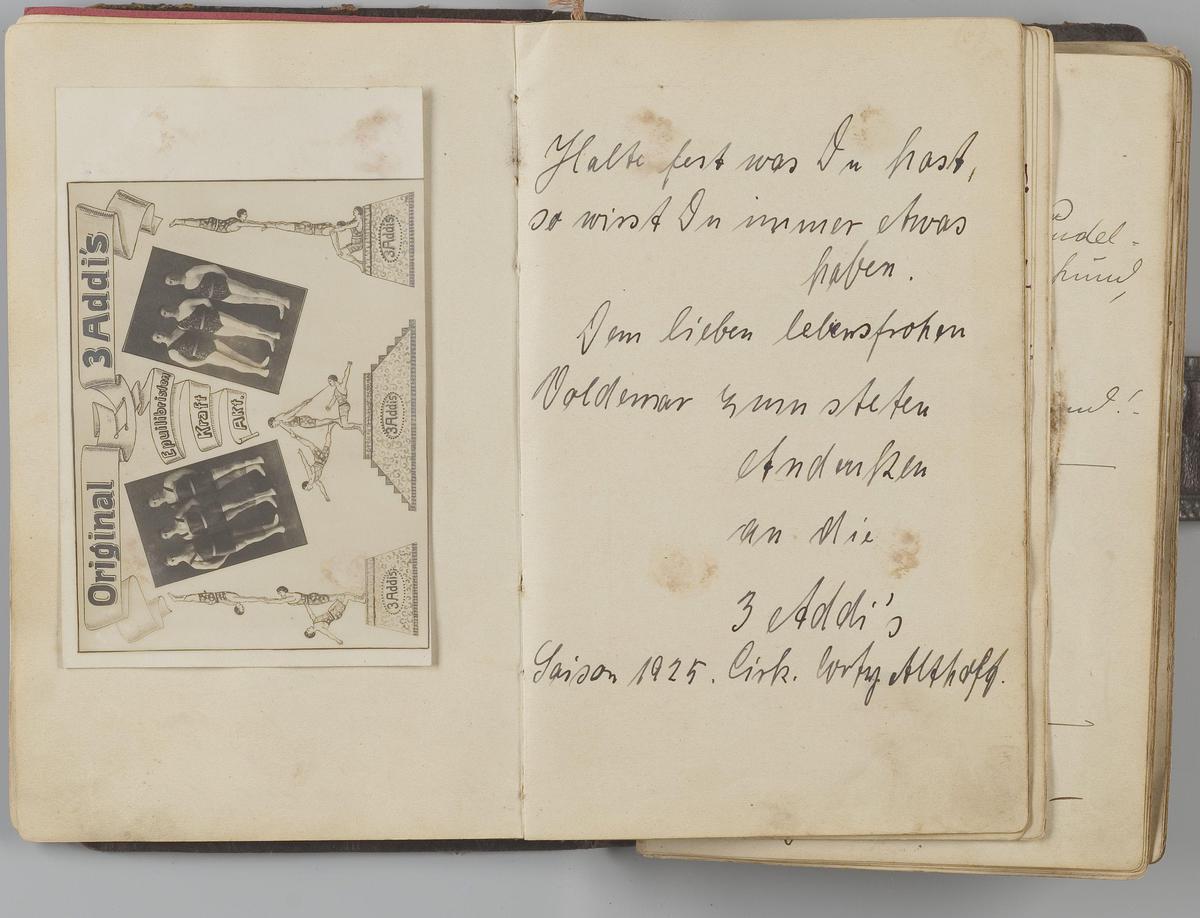 Original 3 Addi's
Equilibristen
Kraft
Akt.
3 Addis
3 Addis
3 Addis
Halte fest was Du hast,
so wirst Du immer etwas
haben.
Dem lieben lebensfrohen
Woldemar zum steten
Andenken
an die
3 Addi's
Saison 1925. Cirk. Corty Althoff.
Pudel-
hund,